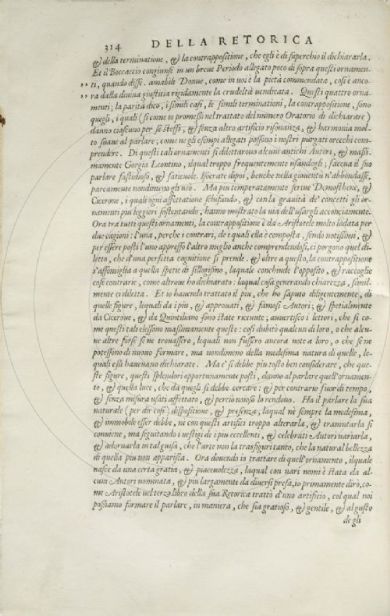 314 DELLA RETORICA
della terminatione, & la contrappositione, che egli è di superchio il dichiararla.
Et il Boccaccio congiunse in un breue Periodo allegato poco di sopra questi ornamen-
ti, quando disse. amabile Donne, come in noi è la pietà commendata, così è anco-
ra dalla diuina giustitia rigidamente la crudeltà uendicata. Questi quattro orna-
menti, la parità dico, i simili casi, le simili terminationi, la contrappositione, sono
quegli, i quali (si come io promessi nel trattato del numero Oratorio di dichiarare)
danno ciascuno per se stessi, & senza altro artificio risonanza, & harmonia mol-
to soaue al parlare; come ne gli esempi allegati possono i uostri purgati orecchi com-
prendere. Di questi tali ornamenti si dilettarono alcuni antichi Autori, & massi-
mamente Gorgia Leontino, il qual troppo frequentemente usandogli, faceua il suo
parlare fastidioso, & satieuole. Isocrate dipoi, benche nella giouentù n'abbondasse,
parcamente nondimeno gli usò. Ma più temperatamente fecero Demosthene, &
Cicerone, i quali ogni affettatione schifando, & con la grauità de' concetti gli or-
namenti più leggieri sostentando, hanno mostrato la uia dell'usargli acconciamente.
Ora tra tutti questi ornamenti, la contrappositione è da Aristotele molto lodata per
due cagioni: l'una, perche i contrari, de' quali ella è composta, sendo notissimi, &
per essere posti l'uno appresso l'altro meglio anche comprendendosi, ci porgono quel di-
letto, che d'una perfetta cognitione si prende. & oltre a questo, la contrappositione
s'assomiglia a quella spetie di sillogismo, laquale conchiude l'opposito, & raccoglie
cose contrarie, come altroue ho dichiarato: laqual cosa generando chiarezza, simil-
mente ci diletta. Et io hauendo trattato il più, che ho saputo diligentemente, di
quelle figure, lequali da i più, & approuati, & famosi Autori; & spetialmente
da Cicerone, & da Quintiliano sono state raccolte; auuertisco i lettori, che si co-
me questi tali elessono massimamente queste: così dubito qual un di loro, o che alcu-
ne altre forse se ne trouassero, lequali non fussero ancora note a loro, o che se ne
potessono di nuouo formare, ma nondimeno della medesima natura di quelle, le-
quali essi haueuano dichiarate. Ma e' si debbe più tosto ben considerare, che que-
ste figure, questi splendori opportunamente posti, danno al parlare quell'ornamen-
to, & quella luce, che da quegli si debbe cercare: & per contrario fuor di tempo,
& senza misura usati affettato, & perciò noioso lo rendono. Ha il parlare la sua
naturale (per dir così) dispositione, & presenza, laqual nè sempre la medesima,
& immobile esser debbe, nè con questi artifici troppo alterarla, & tramutarla si
conuiene, ma seguitando i uestigi de i piu eccellenti, & celebrati Autori uariarla,
& adornarla in tal guisa, che l'arte non la trasfiguri tanto, che la natural bellezza
di quella più non apparisca. Ora douendo io trattare di quell'ornamento, il quale
nasce da una certa gratia, & piaceuolezza, laqual con uari nomi è stata da al-
cuni Autori nominata, & più largamente da diuersi presa, io primamente dirò, co-
me Aristotele nel terzo libro della sua Retorica trattò d'uno artificio, col qual noi
possiamo formare il parlare, in maniera, che sia gratioso, & gentile, & al gusto
de gli